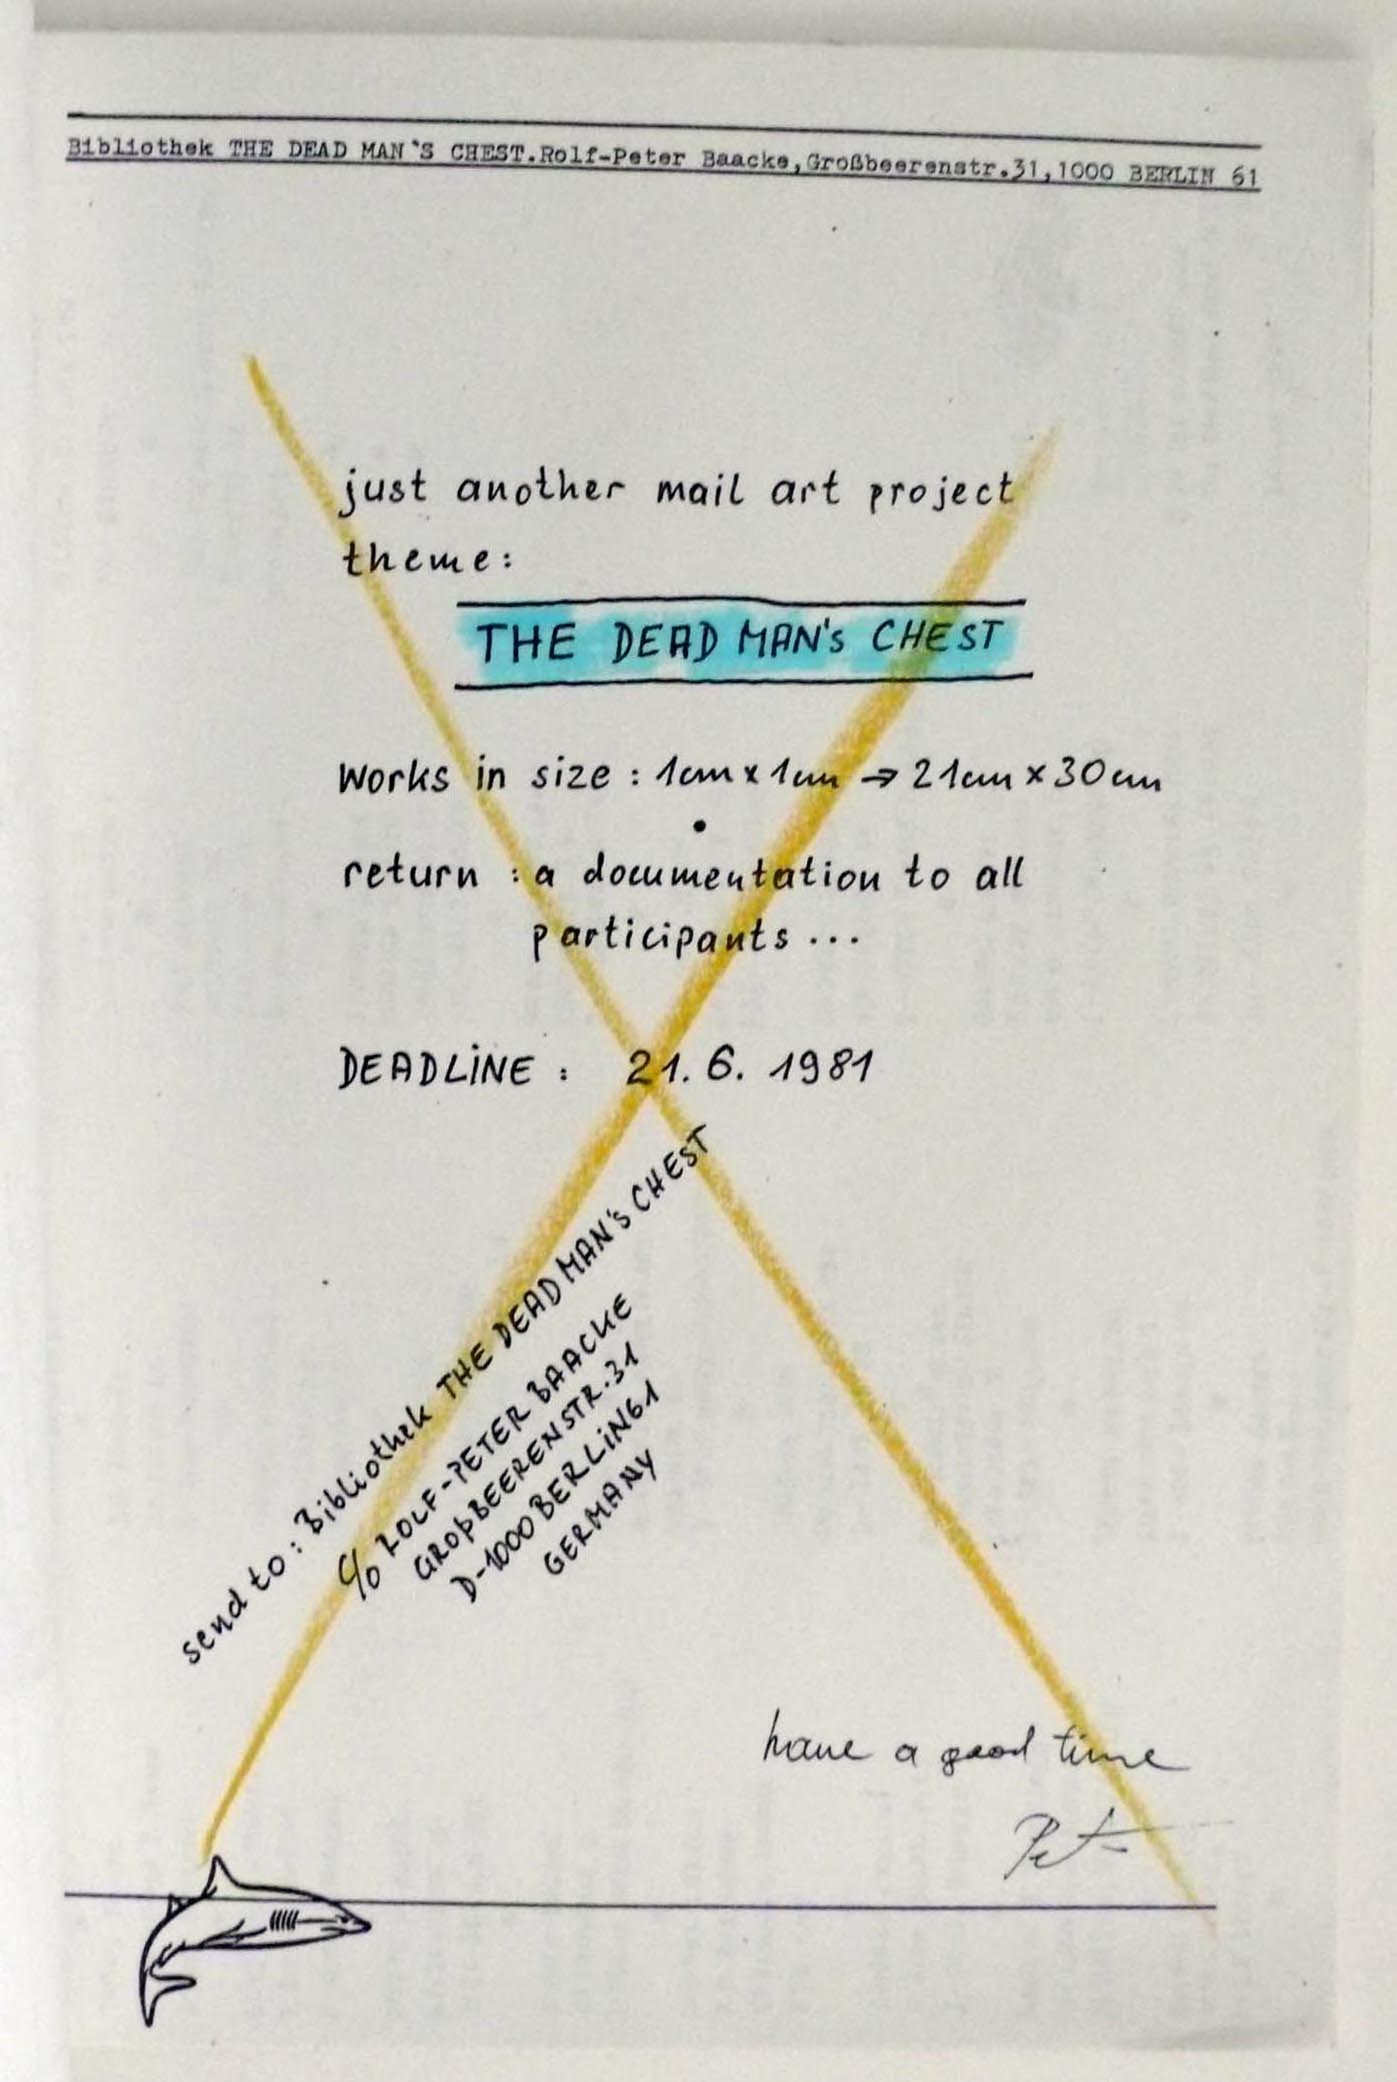 Bibliothek THE DEAD MAN'S CHEST.Rolf-Peter Baacke,Großbeerenstr.31,1000 BERLIN 61
just another mail art project
theme:
THE DEAD MAN's CHEST
works in size : 1cm x 1cm → 21cm x 30cm
•
return : a documentation to all
participants ...
DEADLINE : 21. 6. 1981
send to : Bibliothek THE DEAD MAN's CHEST
c/o ROLF-PETER BAACKE
GROßBEERENSTR. 31
D-1000 BERLIN 61
GERMANY
have a good time
Peter